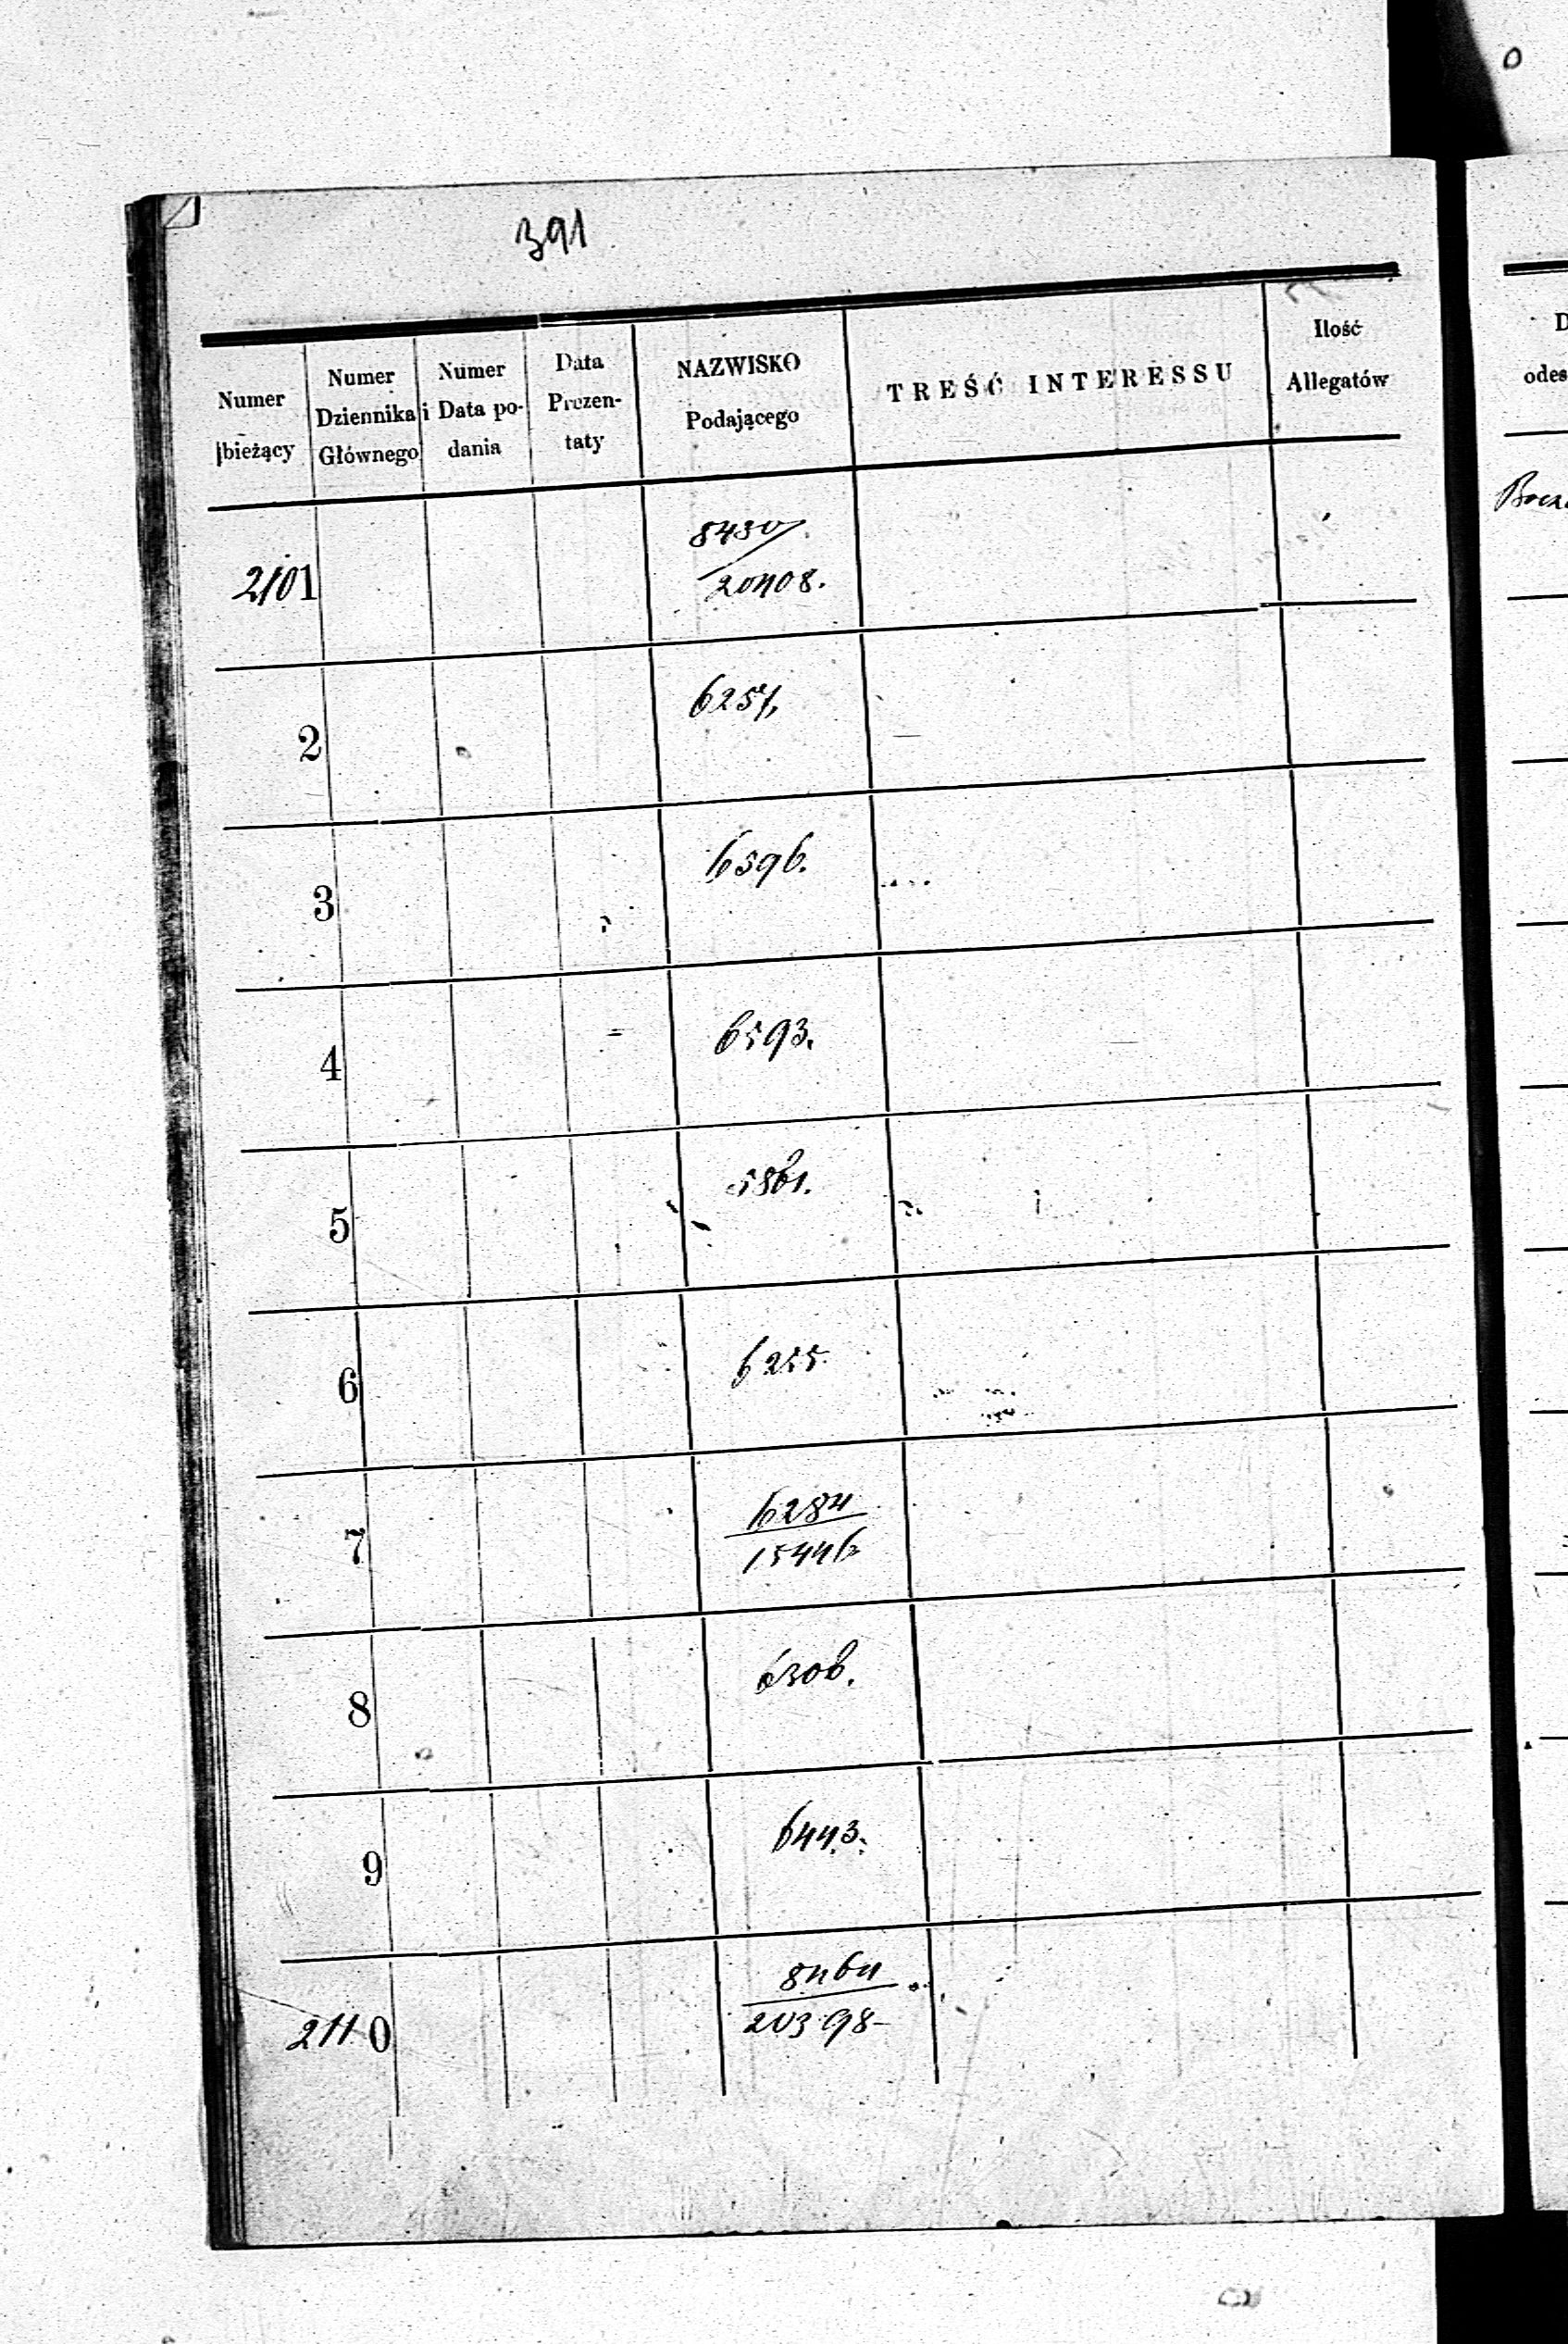 391
Numer bieżący
Numer Dziennika Głównego
Numer i Data podania
Data Prezentaty
NAZWISKO Podającego
TREŚĆ INTERESSU
Ilość Allegatów
2101
8430/
20408.
2
6257,
3
6396.
4
6593.
5
5861.
6
6255.
7
6284
15446
8
6306.
9
6443.
2110
8464
20398-